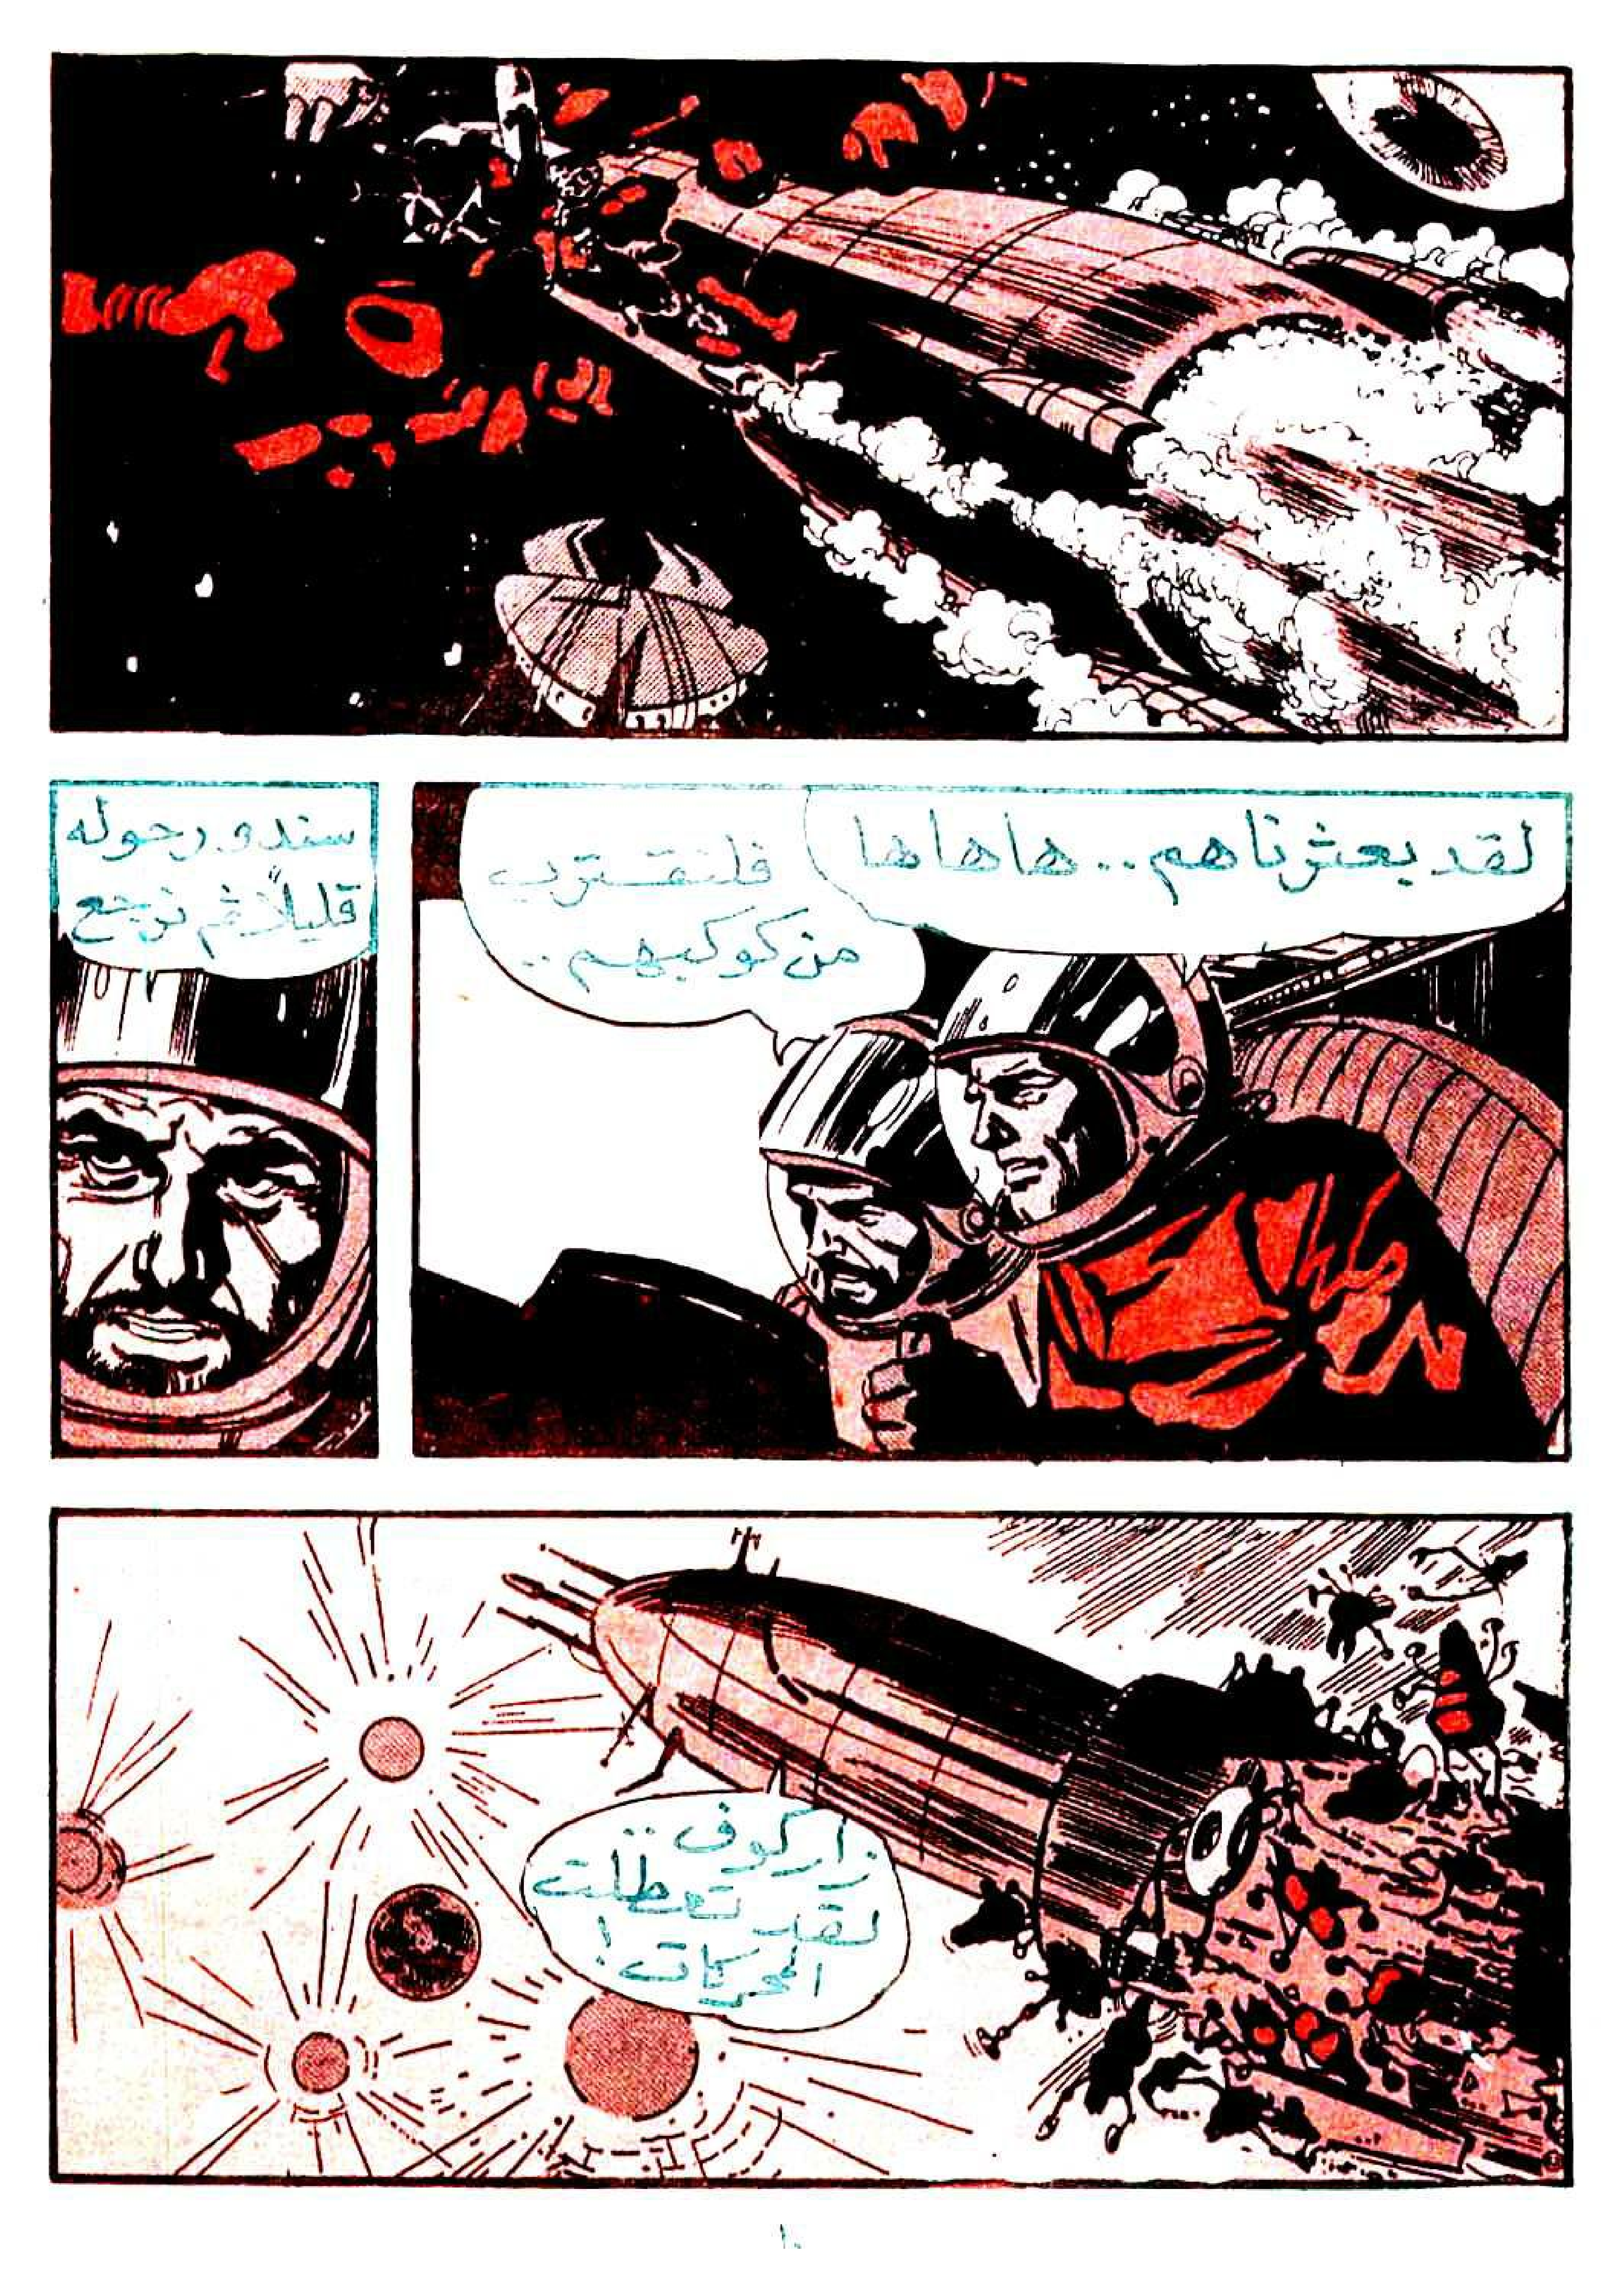 لقد بعثرناهم.. هاهاها
فلنقترب
من كوكبهم..
سندور حوله
قليلاً ثم نرجع
زاركوف..
لقد تعطلت
المحركات!
١٠